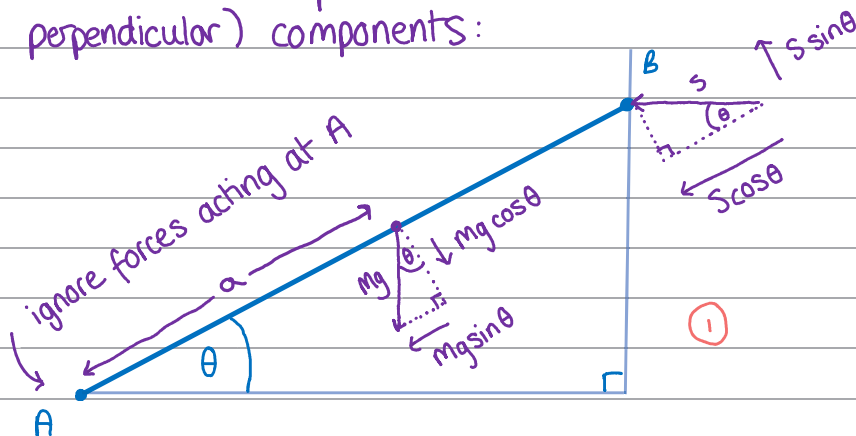 perpendicular) components:
B
S
S sinθ
θ
S cosθ
ignore forces acting at A
a
Mg
θ
Mg cosθ
Mg sinθ
θ
A
1